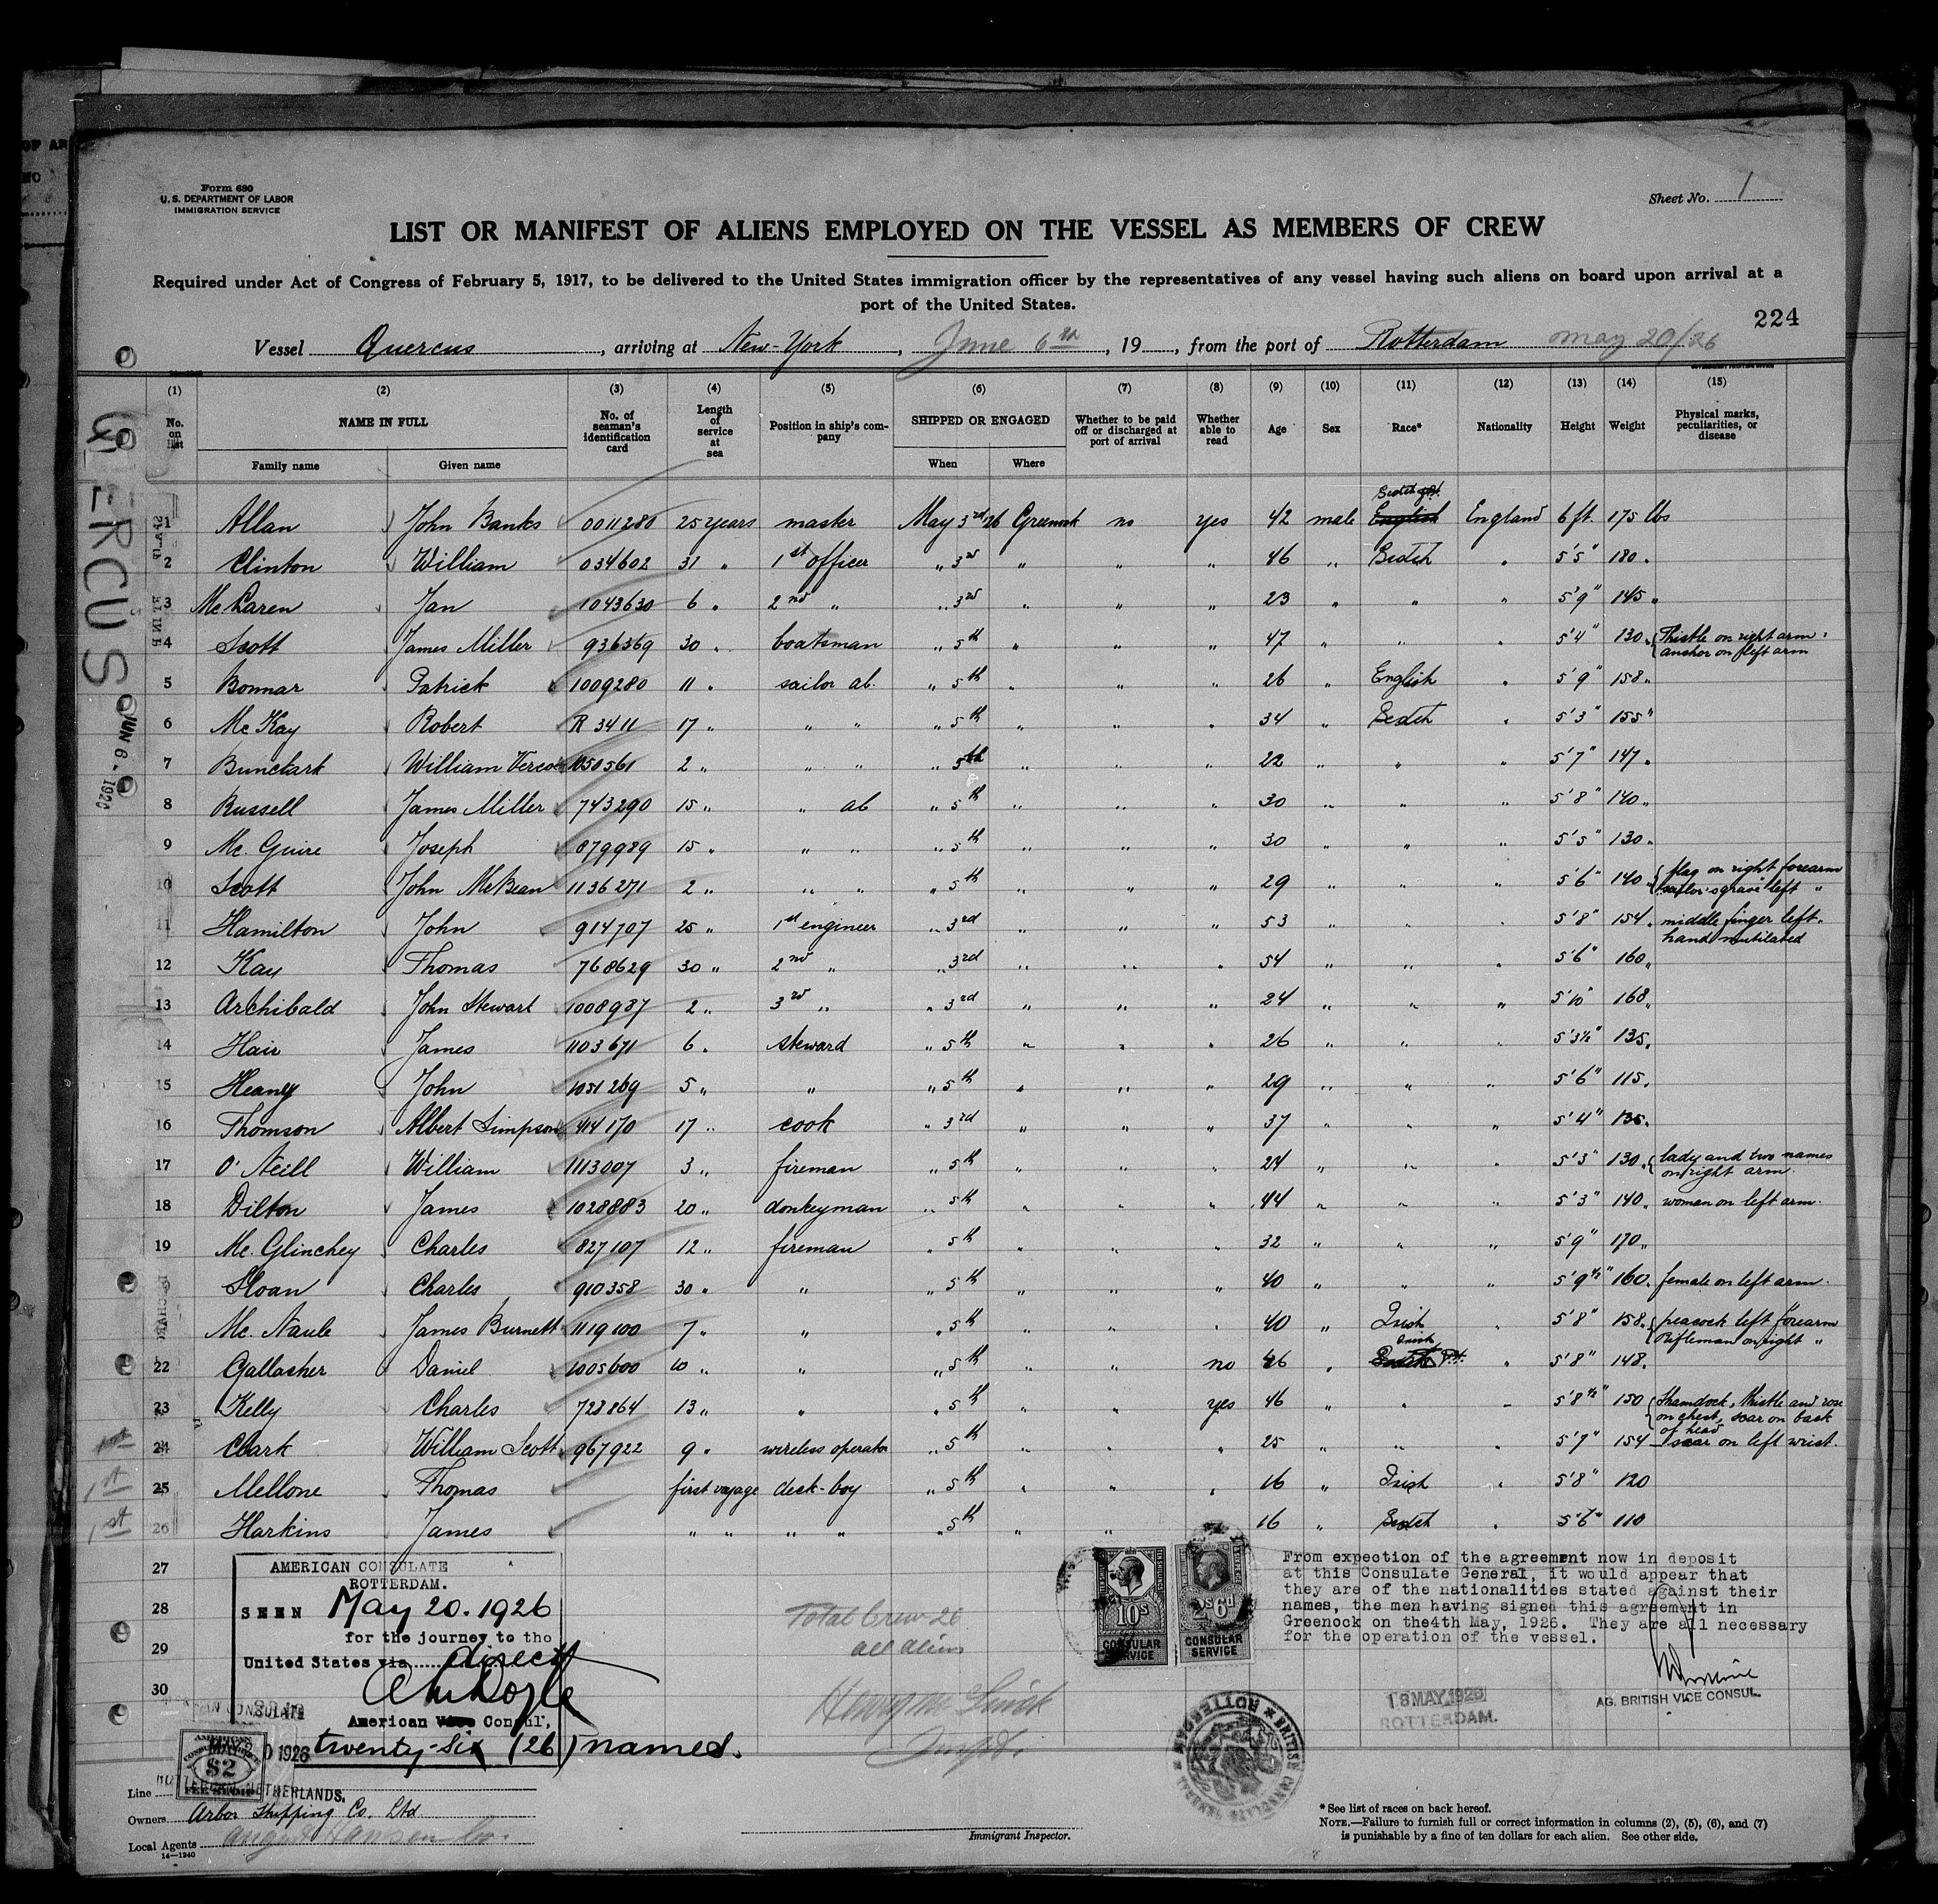 Form 680
U. S. DEPARTMENT OF LABOR
IMMIGRATION SERVICE
Sheet No. 1
LIST OR MANIFEST OF ALIENS EMPLOYED ON THE VESSEL AS MEMBERS OF CREW
Required under Act of Congress of February 5, 1917, to be delivered to the United States immigration officer by the representatives of any vessel having such aliens on board upon arrival at a
port of the United States.
224
Vessel Quercus, arriving at New-York, June 6th, 19, from the port of Rotterdam May 20/26
(1) (2) (3) (4) (5) (6) (7) (8) (9) (10) (11) (12) (13) (14) (15)
No. on list NAME IN FULL No. of seaman's identification card Length of service at sea Position in ship's company SHIPPED OR ENGAGED Whether to be paid off or discharged at port of arrival Whether able to read Age Sex Race* Nationality Height Weight Physical marks, peculiarities, or disease
Family name Given name When Where
1 Allan John Banks 0011280 25 years master May 3rd 26 Greenock no yes 42 male Scotch English England 6 ft. 175 lbs
2 Clinton William 034602 31 " 1st officer " 3rd " " " 46 " Scotch " 5'5" 180 "
3 Mc Laren Jan 1043630 6 " 2nd " " 3rd " " " 23 " " " 5'9" 145 "
4 Scott James Miller 936369 30 " boatsman " 5th " " " 47 " " " 5'4" 130 " Thistle on right arm anchor on left arm
5 Bonnar Patrick 1009280 11 " sailor ab. " 5th " " " 26 " English " 5'9" 158 "
6 Mc Kay Robert R 3411 17 " " " " 5th " " " 34 " Scotch " 5'3" 155 "
7 Bunclark William 1050561 2 " " " " 5th " " " 22 " " " 5'7" 147 "
8 Russell James Miller 743290 15 " " ab " 5th " " " 30 " " " 5'8" 140 "
9 Mc. Guire Joseph 879989 15 " " " " 5th " " " 30 " " " 5'5" 130 "
10 Scott John McBean 1136271 2 " " " " 5th " " " 29 " " " 5'6" 140 " flag on right forearm sailor's grave left "
11 Hamilton John 914707 25 " 1st engineer " 3rd " " " 53 " " " 5'8" 154 " middle finger left hand mutilated
12 Kay Thomas 768629 30 " 2nd " " 3rd " " " 54 " " " 5'6" 160 "
13 Archibald John Stewart 1008987 2 " 3rd " " 3rd " " " 24 " " " 5'10" 168 "
14 Hair James 1103671 6 " steward " 5th " " " 26 " " " 5'3½" 135 "
15 Heaney John 1051269 5 " " " 5th " " " 29 " " " 5'6" 115 "
16 Thomson Albert Simpson 414170 17 " cook " 3rd " " " 37 " " " 5'4" 135 "
17 O'Neill William 1113007 3 " fireman " 5th " " " 24 " " " 5'3" 130 " lady and two names on right arm
18 Dilton James 1028883 20 " donkeyman " 5th " " " 44 " " " 5'3" 140 " woman on left arm.
19 Mc. Glinchey Charles 827107 12 " fireman " 5th " " " 32 " " " 5'9" 170 "
Sloan Charles 910358 30 " " " 5th " " " 40 " " " 5'9½" 160 " female on left arm.
Mc. Naule James Burnett 1119100 7 " " " 5th " " " 40 " Irish " 5'8" 158 " peacock left forearm Rifleman on right "
22 Gallagher Daniel 1005600 10 " " " 5th " " no 26 " Irish Scotch " 5'8" 148 "
23 Kelly Charles 728864 13 " " " 5th " " yes 46 " " " 5'8½" 150 Shamdock, thistle and rose on chest, scar on back of head
1st 24 Clark William Scott 967922 9 " wireless operator " 5th " " " 25 " " " 5'7" 154 scar on left wrist.
1st 25 Mellone Thomas first voyage deck-boy " 5th " " " 16 " Irish " 5'8" 120
1st 26 Harkins James " " " " " 5th " " 16 " Scotch " 5'6" 110
27
28
29
30
AMERICAN CONSULATE
ROTTERDAM.
SEEN May 20. 1926
for the journey to the
United States via direct
American Vice Consul,
twenty-six (26) names.
Total Crew 26
all aliens
10s CONSULAR SERVICE
2s 6d CONSULAR SERVICE
From expection of the agreement now in deposit
at this Consulate General, it would appear that
they are of the nationalities stated against their
names, the men having signed this agreement in
Greenock on the4th May, 1926. They are all necessary
for the operation of the vessel.
AG. BRITISH VICE CONSUL.
18 MAY 1926
ROTTERDAM.
QUERCUS
JUN 6 - 192
$2
1926
NETHERLANDS.
Line
Owners Arbor Shipping Co. Ltd.
Local Agents
14—1240
Immigrant Inspector.
*See list of races on back hereof.
NOTE.—Failure to furnish full or correct information in columns (2), (5), (6), and (7)
is punishable by a fine of ten dollars for each alien. See other side.